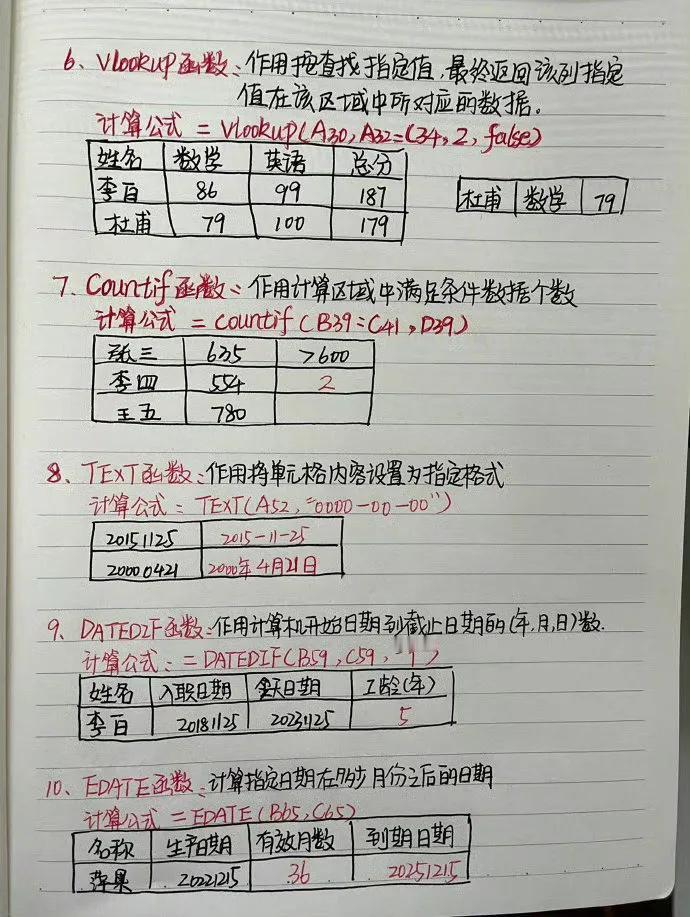 6、Vlookup函数:作用按查找指定值,最终返回该列指定
值在该区域中所对应的数据。
计算公式 = Vlookup(A30,A32:C34,2,false)
姓名 数学 英语 总分
李白 86 99 187
杜甫 79 100 179
杜甫 数学 79
7、Countif函数:作用计算区域中满足条件数据个数
计算公式 = countif(B39:C41,D39)
张三 635 >600
李四 554 2
王五 780
8、TEXT函数:作用将单元格内容设置为指定格式
计算公式 = TEXT(A52,"0000-00-00")
20151125 2015-11-25
20000421 2000年4月21日
9、DATEDIF函数:作用计算机开始日期到截止日期的(年,月,日)数.
计算公式:=DATEDIF(B59,C59,
姓名 入职日期 今天日期 工龄(年)
李白 20181125 20231125 5
10、EDATE函数:计算指定日期在多少月份之后的日期
计算公式 =EDATE(B65,C65)
名称 生产日期 有效月数 到期日期
苹果 20221215 36 20251215